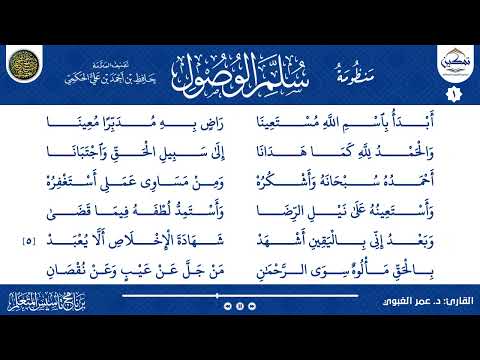 تصنيف العلامة
حَافِظِ بْنِ أَحْمَدَ بْنِ عَلِيٍّ الحَكَمِيِّ
مَنْظُومَةُ
سُلَّمِ الْوُصُولِ
تمكين
١
أَبْدَأُ بِاسْمِ اللَّهِ مُسْتَعِينَا رَاضٍ بِهِ مُدَبِّرًا مُعِينَا
وَالْحَمْدُ لِلَّهِ كَمَا هَدَانَا إِلَى سَبِيلِ الْحَقِّ وَاجْتَبَانَا
أَحْمَدُهُ سُبْحَانَهُ وَأَشْكُرُهُ وَمِنْ مَسَاوِى عَمَلِي أَسْتَغْفِرُهُ
وَأَسْتَعِينُهُ عَلَى نَيْلِ الرِّضَا وَأَسْتَمِدُّ لُطْفَهُ فِيمَا قَضَى
وَبَعْدُ إِنِّي بِالْيَقِينِ أَشْهَدُ شَهَادَةَ الْإِخْلَاصِ أَلَّا يُعْبَدُ [٥]
بِالْحَقِّ مَأْلُوهٌ سِوَى الرَّحْمَٰنِ مَنْ جَلَّ عَنْ عَيْبٍ وَعَنْ نُقْصَانِ
القارئ: د. عمر الغبوي
برنامج تأسيس المتعلم